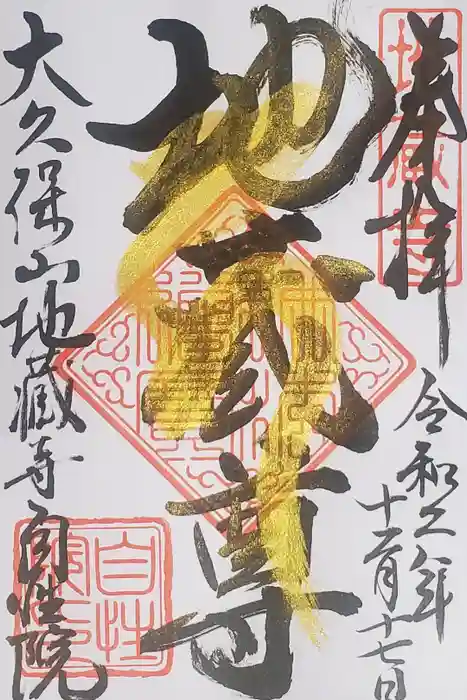 奉拝
令和二年
十二月十七日
地蔵尊
大久保山地蔵寺自性院
自性
院印